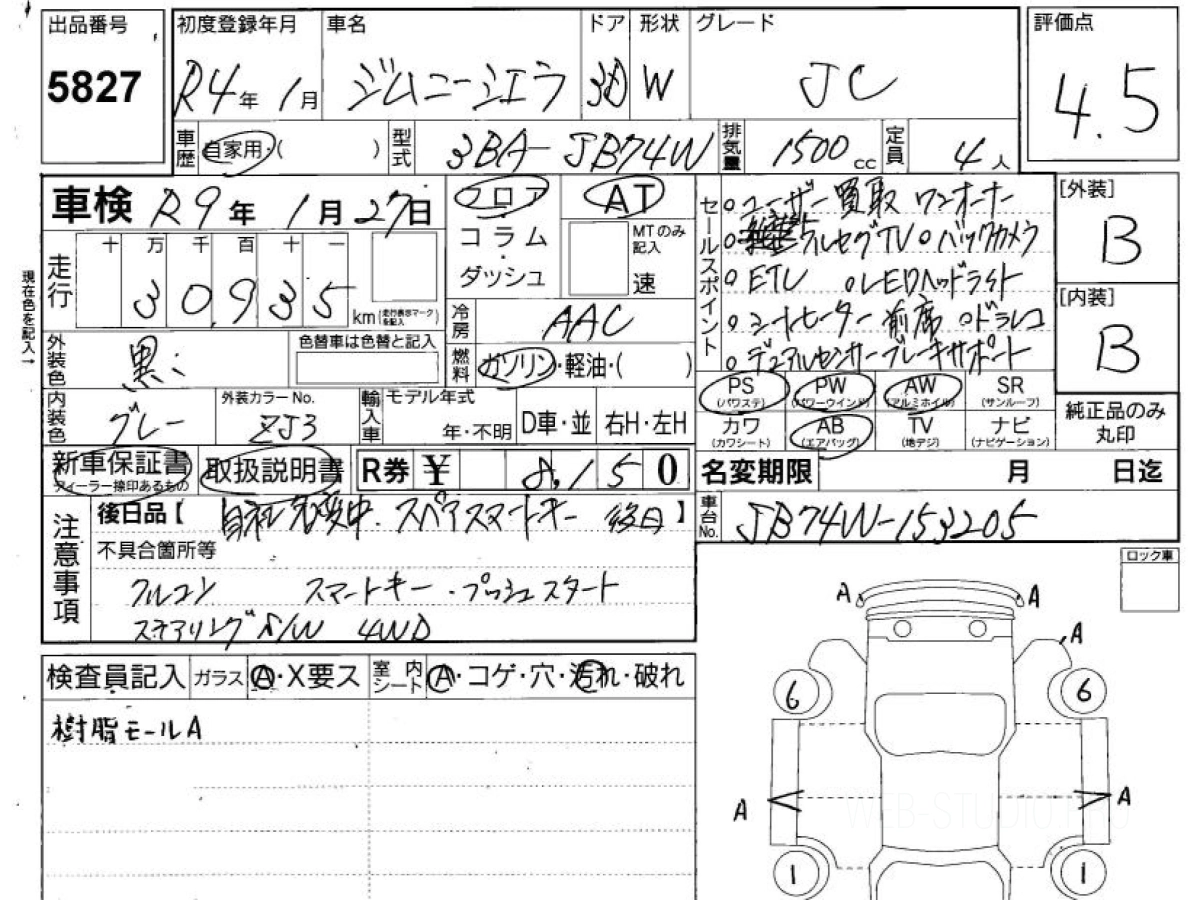 出品番号 初度登録年月 車名 ドア 形状 グレード 評価点
5827 R4年 1月 ジムニーシエラ 3D W JC 4.5
車歴 自家用・( ) 型式 3BA-JB74W 排気量 1500cc 定員 4人
車検 R9年 1月27日 フロア AT セールスポイント 。ユーザー買取 ワンオーナー [外装]
コラム・ダッシュ MTのみ記入 速 フルセグTV 。バックカメラ B
走行 十 万 千 百 十 一 。ETC 。LEDヘッドライト [内装]
現在色を記入→
30,935 km (走行表示マークを記入) 冷房 AAC 。シートヒーター前席 。ドラレコ B
外装色 黒 色替車は色替と記入 燃料 ガソリン・軽油・( ) 。デュアルセンサーブレーキサポート
PS (パワステ) PW (パワーウインド) AW (アルミホイル) SR (サンルーフ)
内装色 グレー 外装カラーNo. ZJ3 輸入車 モデル年式 年・不明 D車・並 右H・左H カワ (カワシート) AB (エアバッグ) TV (地デジ) ナビ (ナビゲーション) 純正品のみ丸印
新車保証書 ディーラー捺印あるもの 取扱説明書 R券 ¥ 8,150 名変期限 月 日迄
注意事項 後日品【 自社名変中.スペアスマートキー 後日 】 車台No. JB74W-153205
不具合箇所等 ロック車
クルコン スマートキー・プッシュスタート
ステアリングS/W 4WD
A A
A
検査員記入 ガラス A・X要ス 室内シート A・コゲ・穴・汚れ・破れ
6 6
樹脂モールA
A A
WEB-STUDIO.PRO
1 1